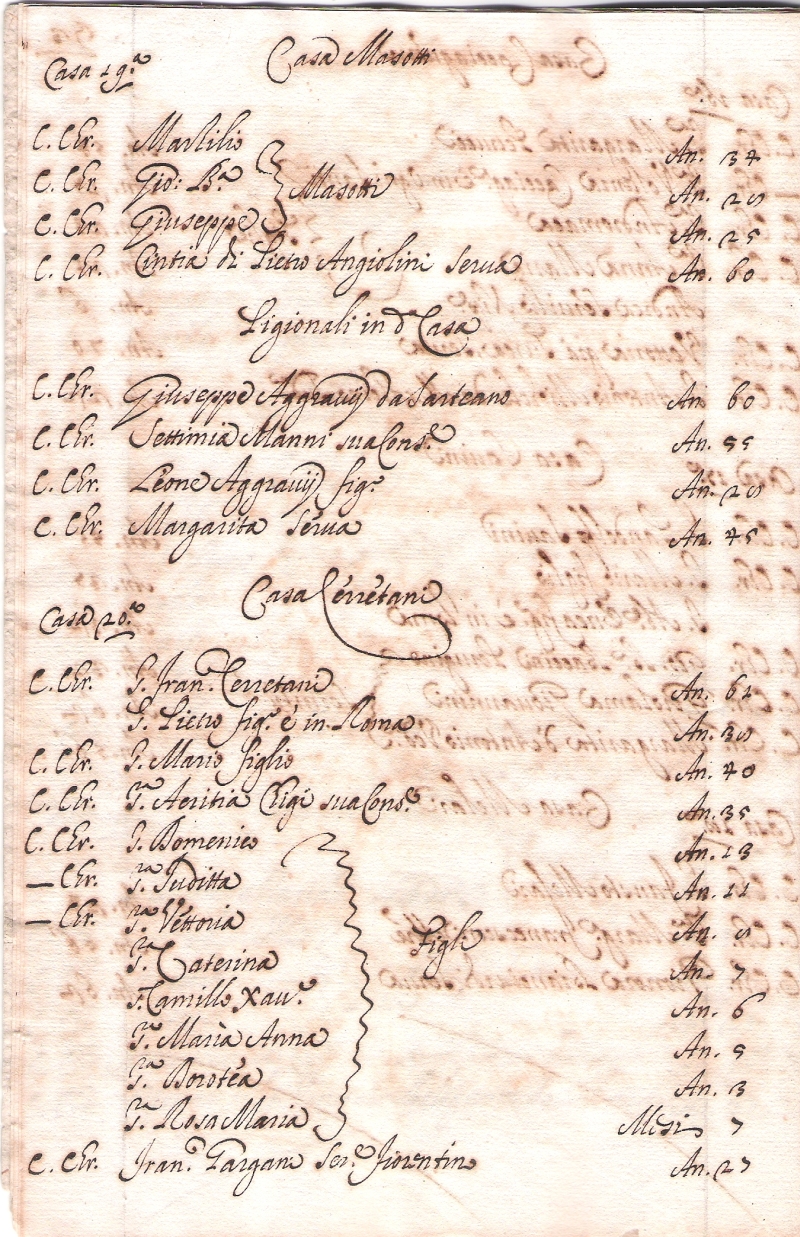 Casa 19.ª Casa Masotti
C. Chr. Marsilio An. 34
C. Chr. Gio: B.ª Masotti An. 28
C. Chr. Giuseppe An. 25
C. Chr. Cintia di Pietro Angiolini serva An. 60
Pigionali in d.ª Casa
C. Chr. Giuseppe Aggravij da Sarteano An. 60
C. Chr. Settimia Manni sua Cons.e An. 55
C. Chr. Leone Aggravij fig.o An. 28
C. Chr. Margarita Serva An. 45
Casa 20.ª Casa Cerretani
C. Chr. S. Fran.o Cerretani An. 61
S. Pietro fig.o è in Roma An. 38
C. Chr. S. Mario figlio An. 40
C. Chr. S.ra Chigi sua Cons.e An. 35
C. Chr. S. Domenico An. 13
— Chr. S.ra Juditta An. 11
— Chr. S.ra Vettoria Figli An. 8
S.ra Caterina An. 7
S. Camillo Xav.o An. 6
S.ra Maria Anna An. 5
S.ra Dorotea An. 3
S.ra Rosa Maria Mesi 7
C. Chr. Fran.o Ser.e Fiorentino An. 27